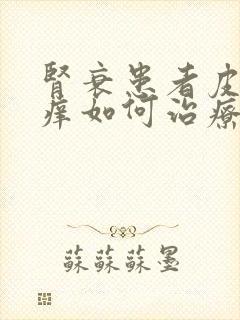 腎衰患者皮
癢如何治療
蘇蘇蘇墨